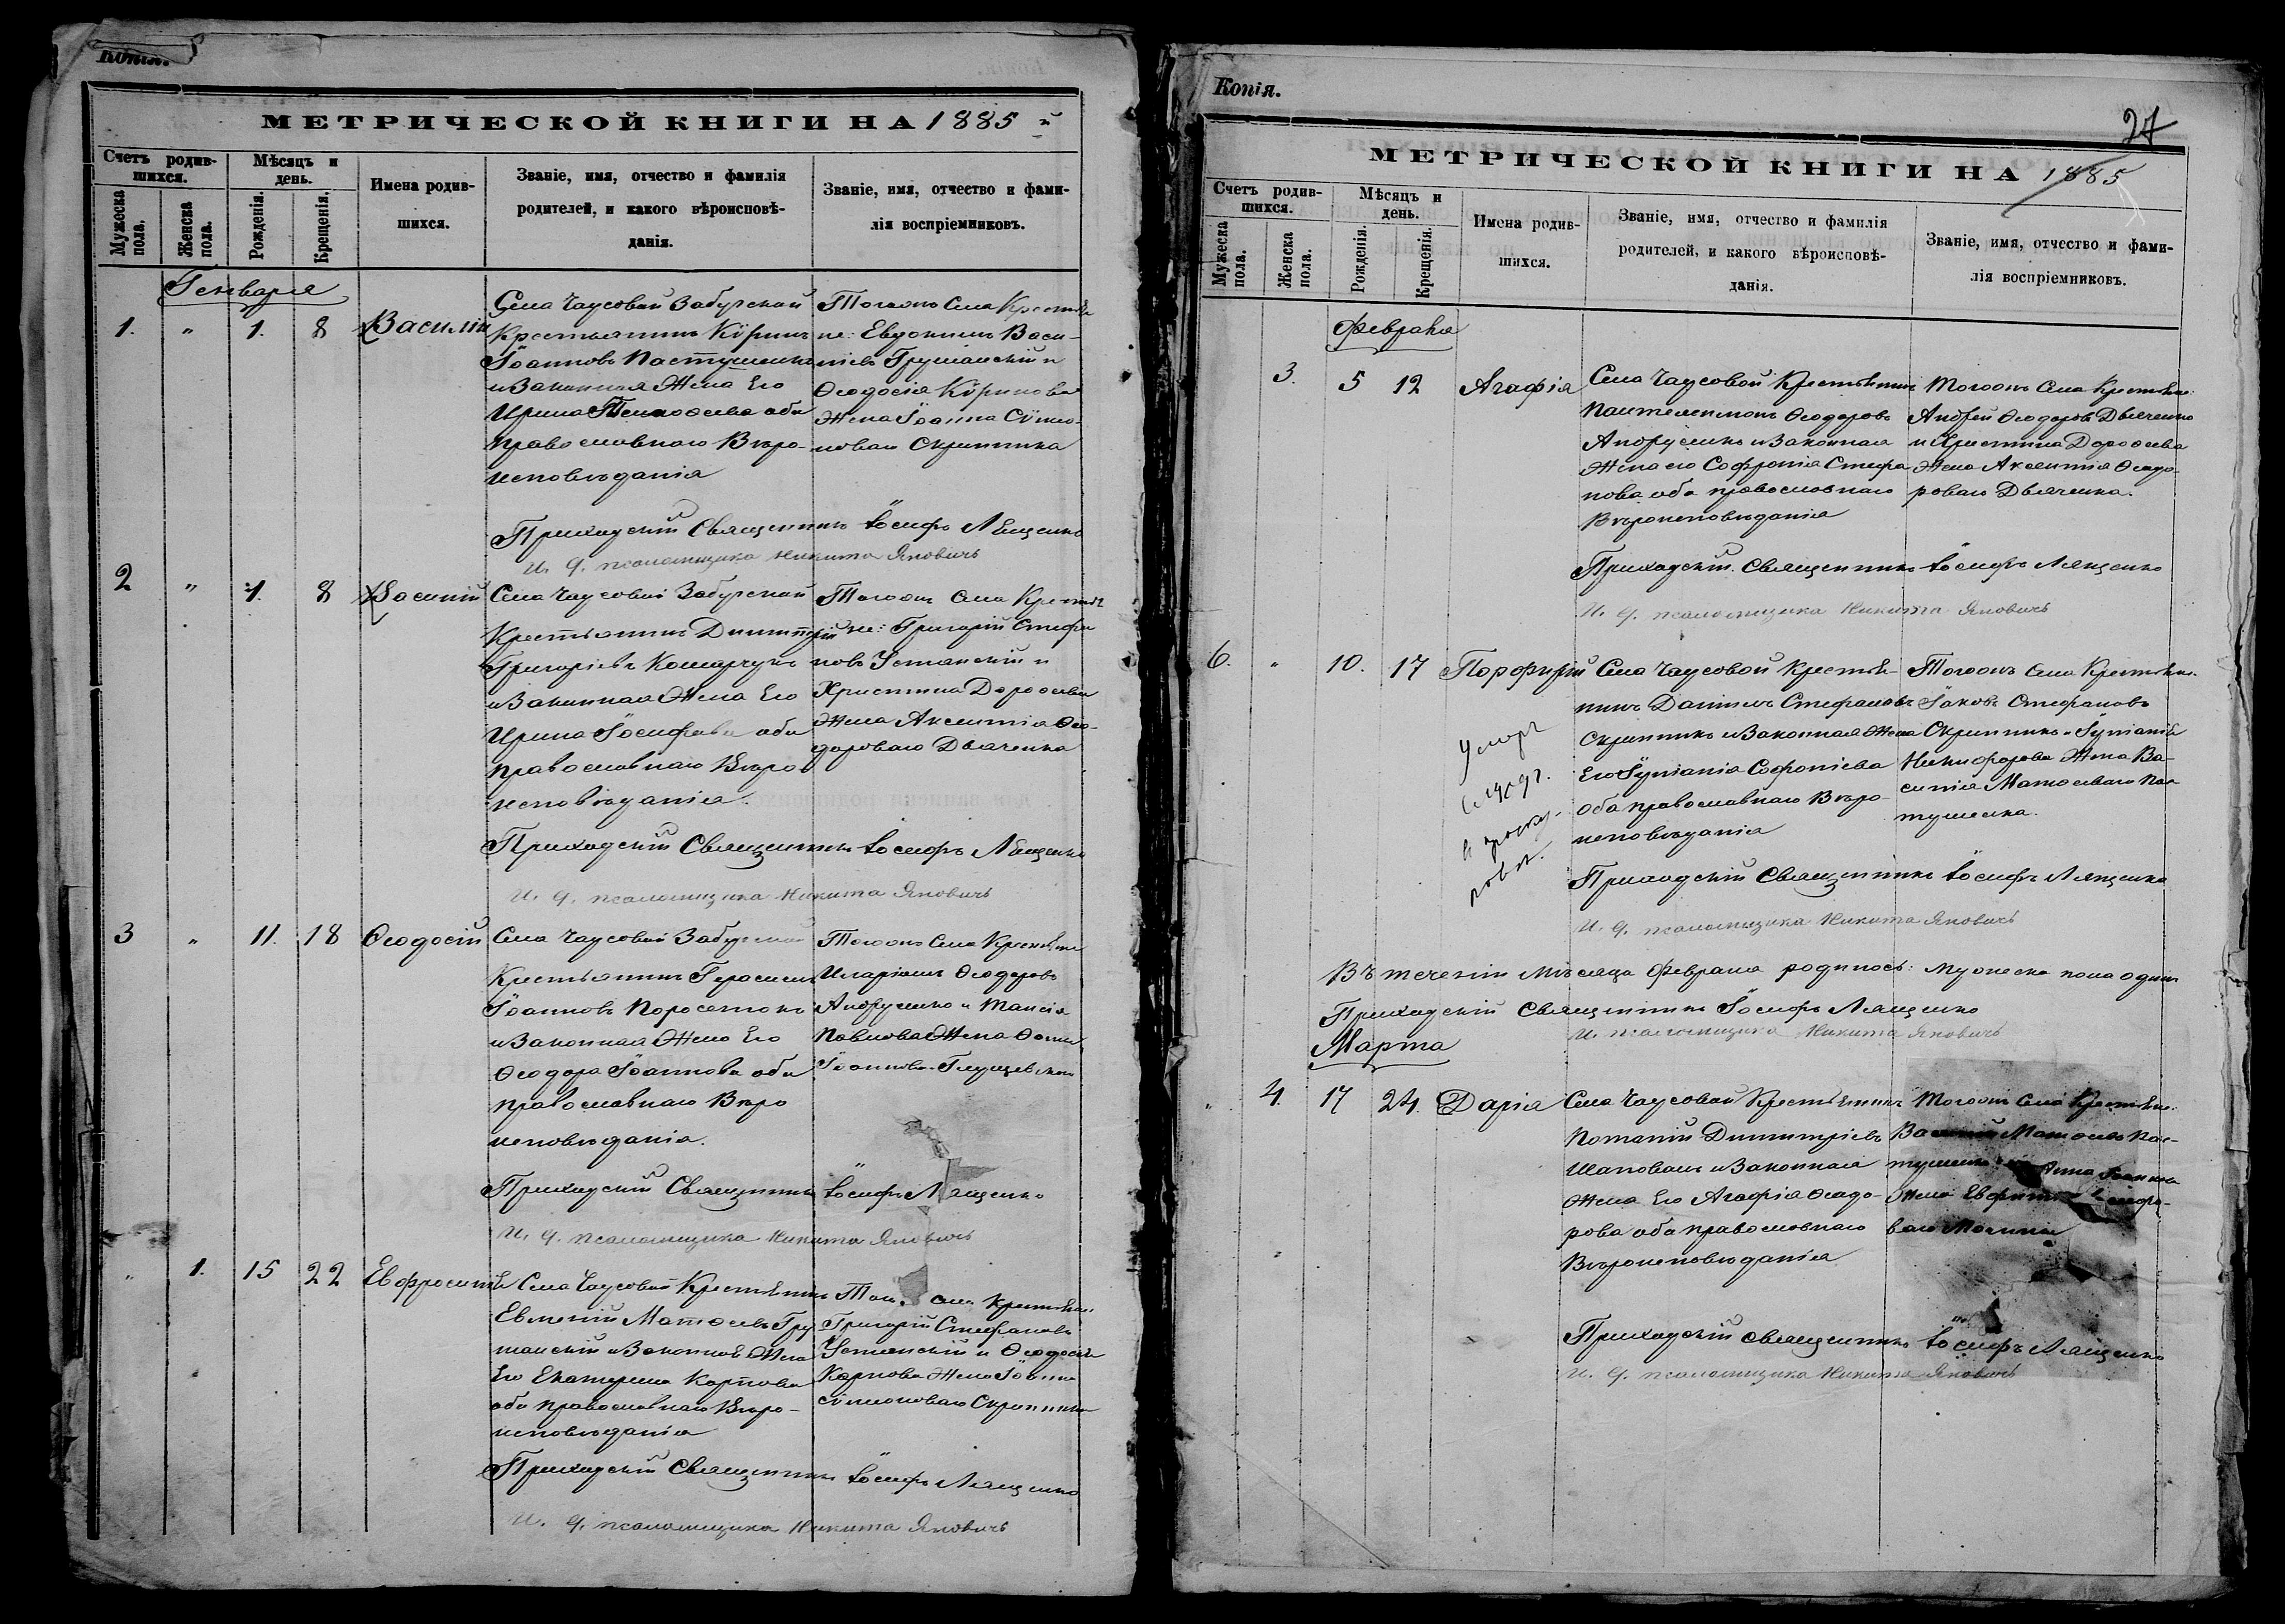 Копія.
МЕТРИЧЕСКОЙ КНИГИ НА 1885 й
Счетъ родив-
шихся.
Мѣсяцъ и
день.
Имена родив-
шихся.
Званіе, имя, отчество и фамилія
родителей, и какого вѣроисповѣ-
данія.
Званіе, имя, отчество и фами-
лія воспріемниковъ.
Мужеска
пола.
Женска
пола.
Рожденія.
Крещенія.
Генваря
1. " 1. 8 Василій
Села Чаусовой Забугской
Крестьянинъ Кѵриллъ
Іоанновъ Пастушенко
и Законная Жена Его
Ирина обa
православнаго Вѣро-
исповѣданія
Тогоже Села Крестья
не: Евдокимъ Васи-
ліевъ Грушанскій и
Ѳеодосія Кѵрилова
Жена Іоанна Сѵмео-
новаго Скрипника
Приходскій Священникъ Іосифъ Лященко
И. д. псаломщика Никита Яновичъ
2 " 1. 8 Василій
Села Чаусовой Забугской
Крестьянинъ Димитрій
Григоріевъ Комарчукъ
и Законная Жена Его
Ирина Іосифова оба
православнаго Вѣро-
исповѣданія.
Тогоже Села Крестья
не: Григорій Стефа
новъ Устянскій и
Христина Дороѳеева
Жена Аксентія Ѳео-
дороваго Дьяченка
Приходскій Священникъ Іосифъ Лященко
И. д. псаломщика Никита Яновичъ
3 " 11. 18 Ѳеодосій
Села Чаусовой Забугской
Крестьянинъ Герасимъ
Іоанновъ Поросенокъ
и Законная Жена Его
Ѳеодора Іоаннова оба
православнаго Вѣро
исповѣданія.
Тогоже Села Крестьяне
Иларіонъ Ѳеодоровъ
Андрусенко и Таисія
Павлова Жена Ѳомы
Іоаннова
Приходскій Священникъ Іосифъ Лященко
И. д. псаломщика Никита Яновичъ
" 1. 15 22 Евфросинія
Села Чаусовой Крестьянинъ
Евмений Матѳеевъ Гру
шанскій и Законная Жена
Его Екатерина Карпова
оба православнаго Вѣро-
исповѣданія
Села Крестьяне.
Григорій Стефановъ
Устянскій и Ѳеодосія
Карпова Жена Іоанна
Сѵмеоноваго Скрипника
Приходскій Священникъ Іосифъ Лященко
И. д. псаломщика Никита Яновичъ
Копія.
27
МЕТРИЧЕСКОЙ КНИГИ НА 1885
Счетъ родив-
шихся.
Мѣсяцъ и
день.
Имена родив-
шихся.
Званіе, имя, отчество и фамилія
родителей, и какого вѣроисповѣ-
данія.
Званіе, имя, отчество и фами-
лія воспріемниковъ.
Мужеска
пола.
Женска
пола.
Рожденія.
Крещенія.
Февраля
3. 5 12 Агафія
Села Чаусовой Крестьянинъ
Пантелеимонъ Ѳеодоровъ
Андрусенко и Законная
Жена его Софронія Стефа
нова оба православнаго
Вѣроисповѣданія
Тогоже Села Крестьяне:
Андрей Ѳеодоровъ Дьяченко
и Христина Дороѳеева
Жена Аксентія Ѳеодо-
роваго Дьяченка.
Приходскій Священникъ Іосифъ Лященко
И. д. псаломщика Никита Яновичъ
6. " 10. 17 Порфирій
Села Чаусовой Крестья-
нинъ Даніилъ Стефановъ
Скрипникъ и Законная Жена
Его Іуліанія Софоніева
оба православнаго Вѣро-
исповѣданія
Тогоже Села Крестьяне.
Іаковъ Стефановъ
Скрипникъ и Іуліанія
Никифорова Жена Ва-
силія Матѳеева Пас
тушенка.
Умеръ
Приходскій Священникъ Іосифъ Лященко
И. д. псаломщика Никита Яновичъ
Въ теченіи Мѣсяца Февраля родилось: Мужеска пола одинъ
Приходскій Священникъ Іосифъ Лященко
И. псаломщика Никита Яновичъ
Марта
" 4. 17 24. Дарія
Села Чаусовой Крестьянинъ
Потапій Димитріевъ
Шаповалъ и Законная
Жена Его Агафія Ѳеодо-
рова оба православнаго
Вѣроисповѣданія
Тогоже Села Крестьяне:
Василій Матѳеевъ Пас-
тушенко Анна
Жена
Приходскій Священникъ Іосифъ Лященко
И. д. псаломщика Никита Яновичъ